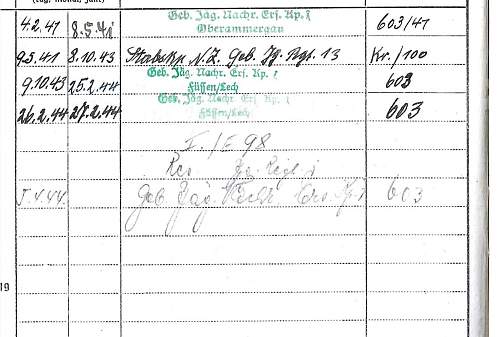 (Tag, Monat, Jahr)
4.2.41 8.5.41 Geb. Jäg. Nachr. Ers. Kp. 1 603/41
Oberammergau
9.5.41 8.10.43 Stabskp. N.Z. Geb. Jg. Rgt. 13 Kr./100
9.10.43 25.2.44 Geb. Jäg. Nachr. Ers. Kp. 1 603
Füssen/Lech
26.2.44 27.2.44 Geb. Jäg. Nachr. Ers. Kp. 1 603
Füssen/Lech
I./E 98
Res
4.44. Geb Jäg Ers. Kp. 1 603
19